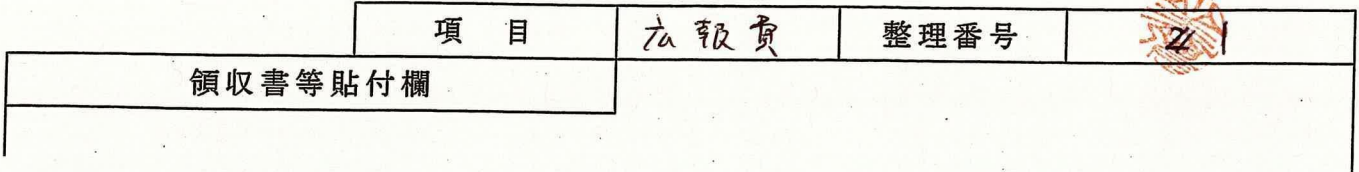 項 目 広報費 整理番号 1
領収書等貼付欄